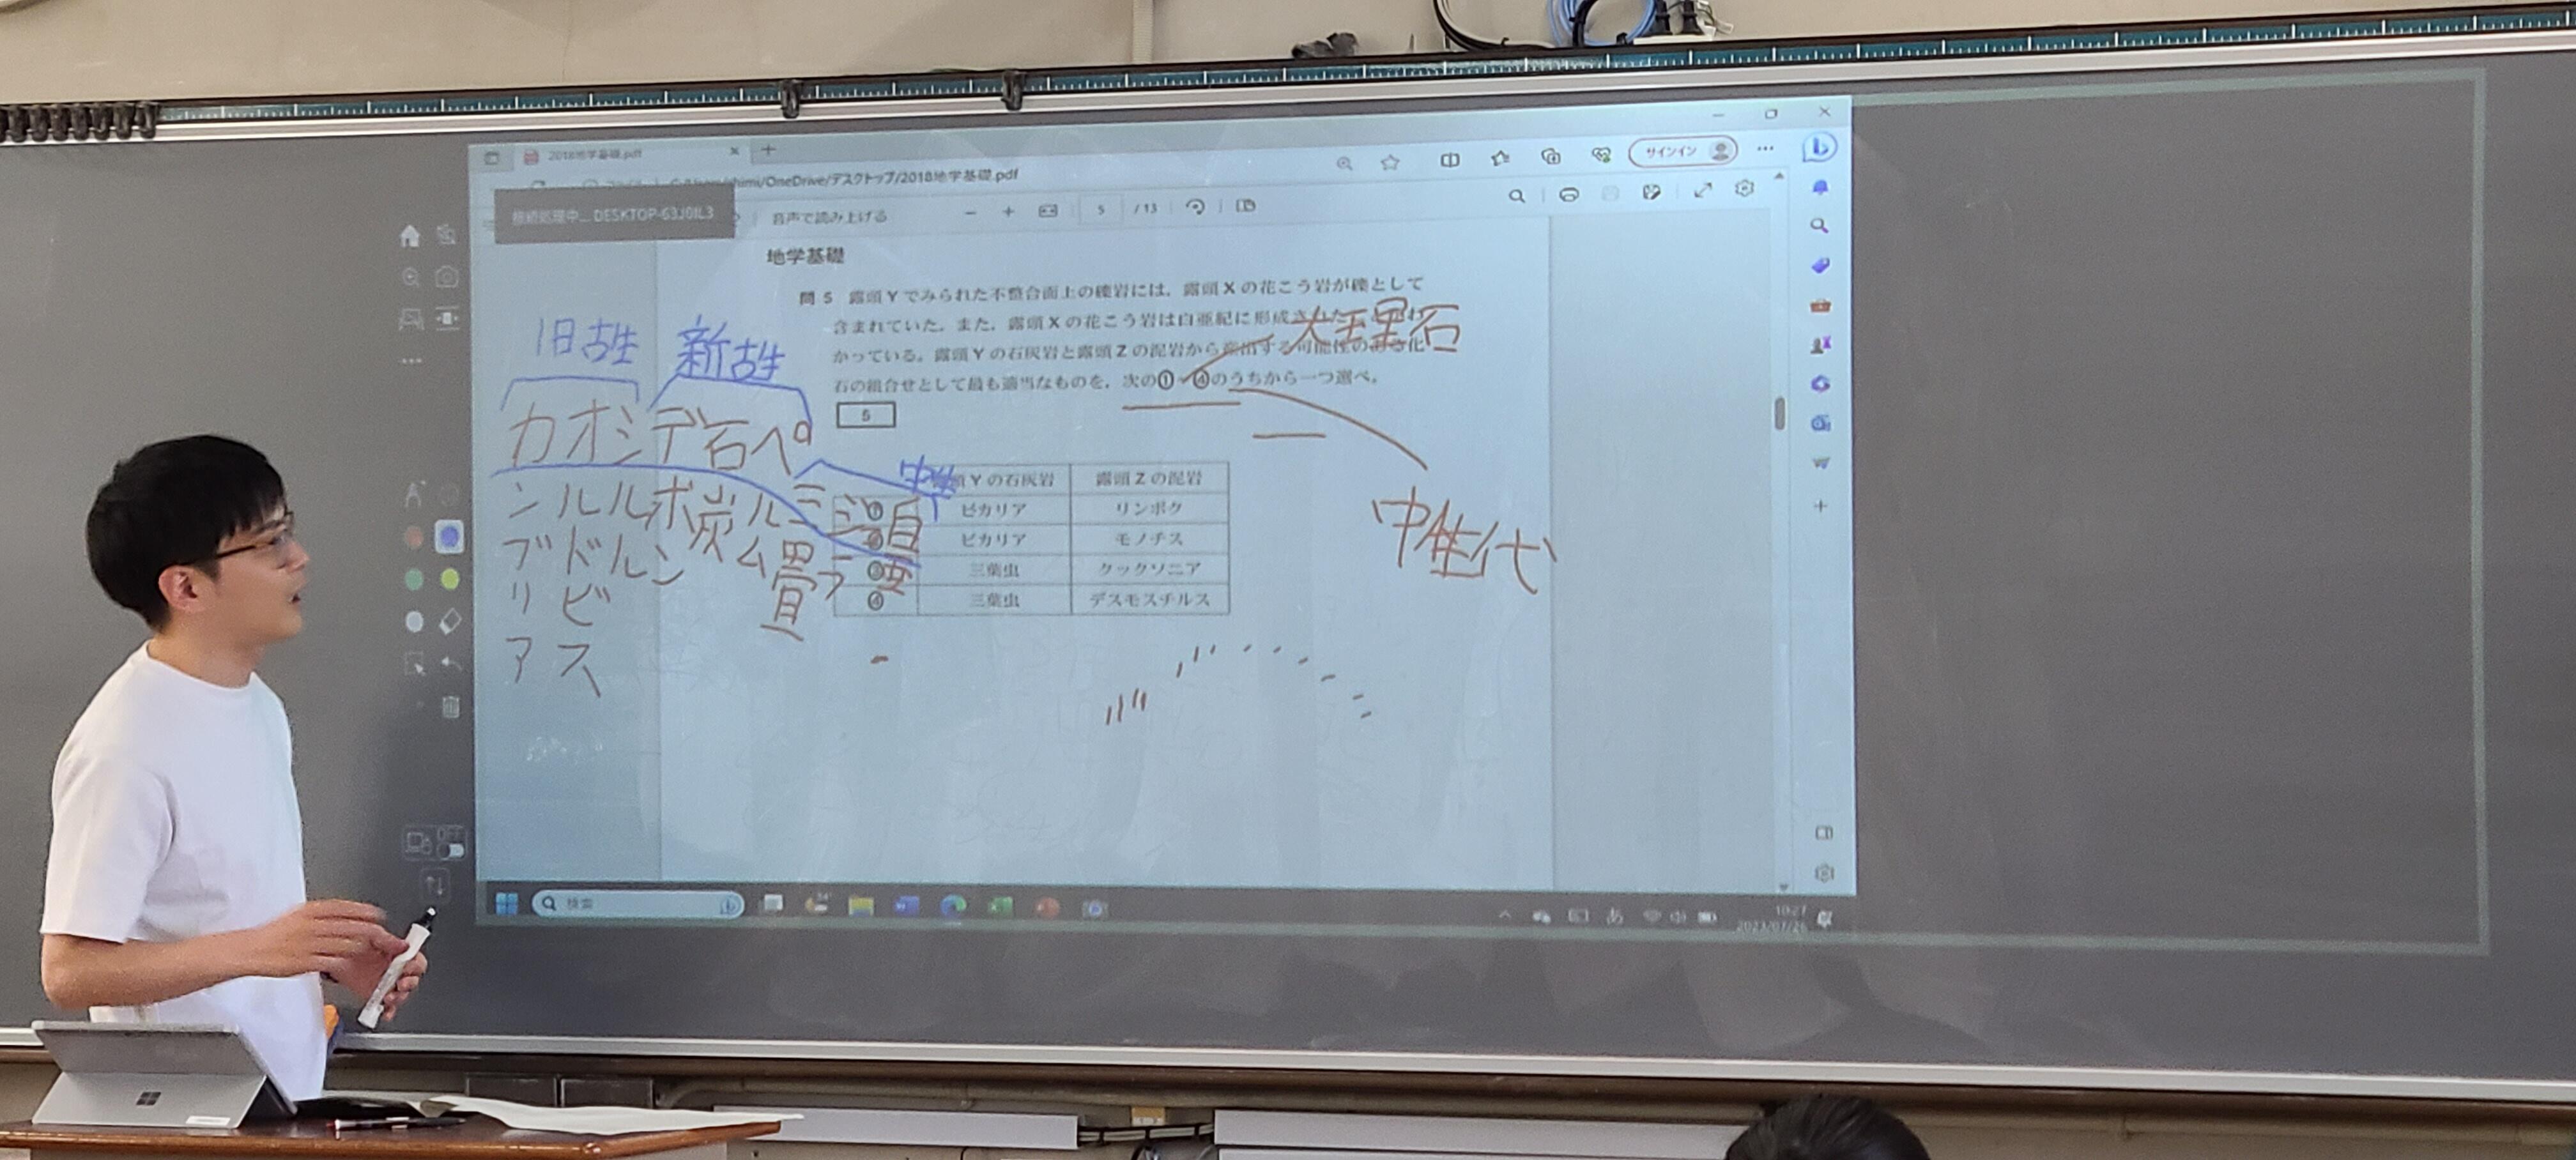 2018地学基礎.pdf
サインイン
/OneDrive/デスクトップ/2018地学基礎.pdf
接続処理中... DESKTOP-63J0IL3
音声で読み上げる
5 / 13
地学基礎
問 5 露頭Yでみられた不整合面上の礫岩には,露頭Xの花こう岩が礫として
含まれていた。また,露頭Xの花こう岩は白亜紀に形成された
かっている。露頭Yの石灰岩と露頭Zの泥岩から産出する可能性のある化
石の組合せとして最も適当なものを,次の①~④のうちから一つ選べ。
5
大理石
旧古生 新古生
カオシデ石ペ
ンルルボ炭ルミジ白
ブドルン ム畳ラ亜
リビ
アス
中生
中性代
Yの石灰岩 露頭Zの泥岩
① ビカリア リンボク
② ビカリア モノチス
③ 三葉虫 クックソニア
④ 三葉虫 デスモスチルス
検索
あ
10:27
2023/07/26
OFF